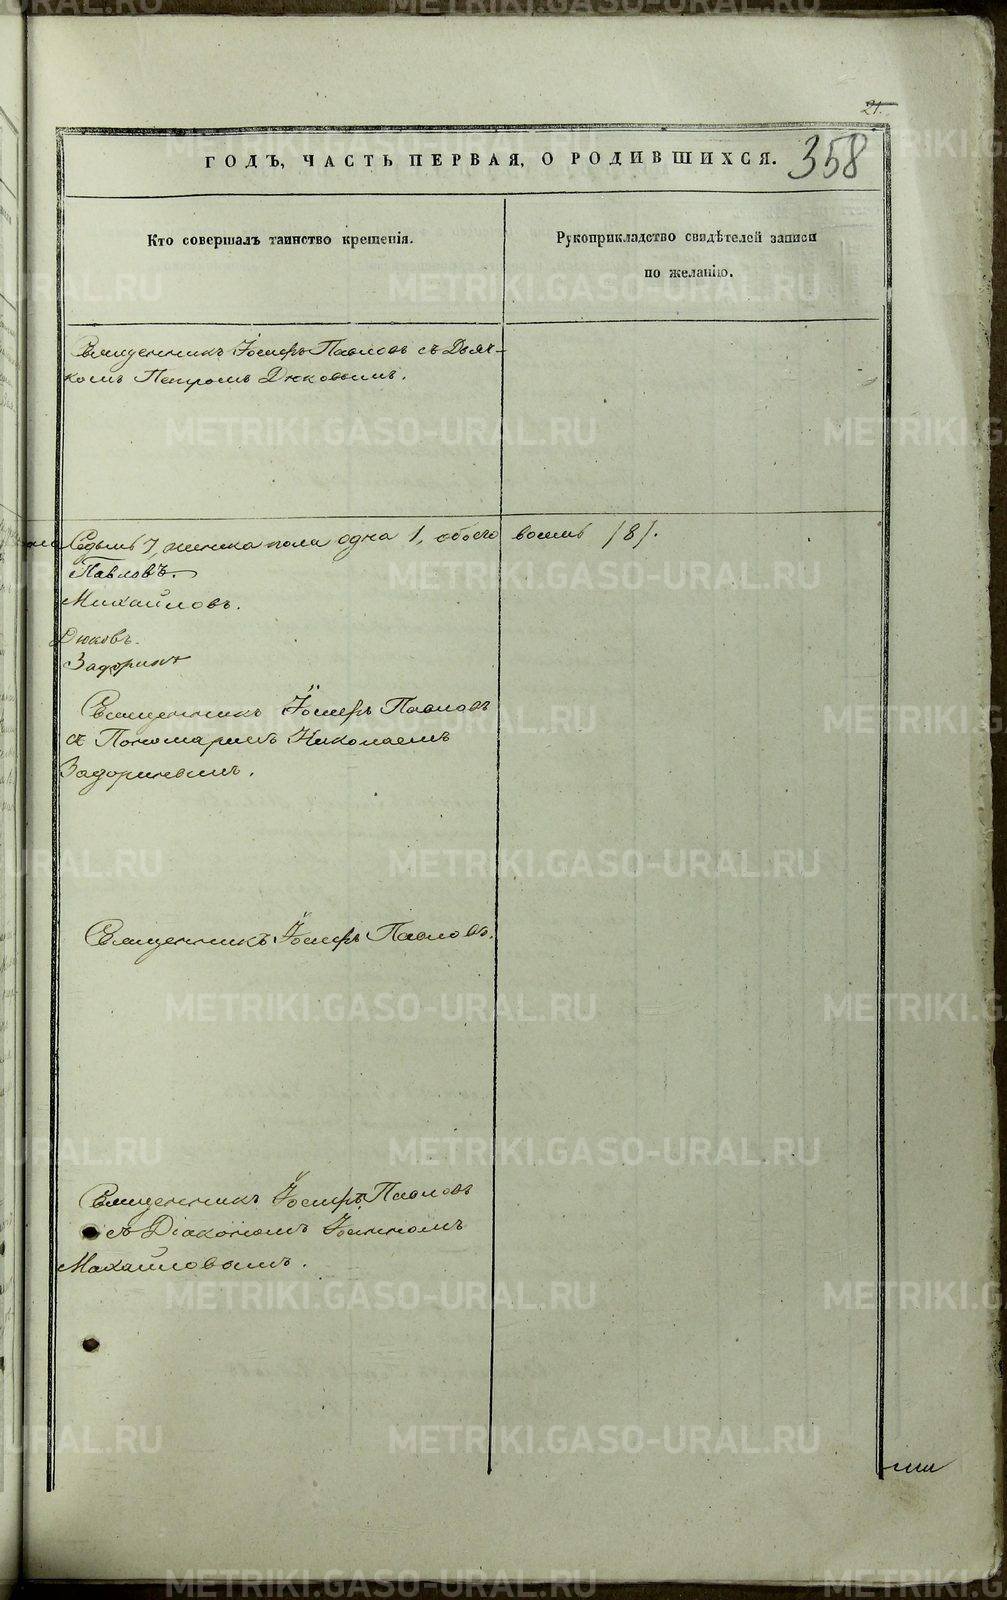 21.
358
ГОДЪ, ЧАСТЬ ПЕРВАЯ, О РОДИВШИХСЯ.
Кто совершалъ таинство крещенія.
Рукоприкладство свидѣтелей записи
по желанію.
Священникъ Іосифъ Павловъ съ Дьяч-
комъ Петромъ Дюковымъ.
Седьмъ 7, женска пола одна 1, обоего восемь /8/.
Павловъ.
Михайловъ.
Дюковъ.
Задоринъ
Священникъ Іосифъ Павловъ
съ Пономаремъ Николаемъ
Задоринымъ.
Священникъ Іосифъ Павловъ.
Священникъ Іосифъ Павловъ
съ Діакономъ Іоанномъ
Михайловымъ.
METRIKI.GASO-URAL.RU